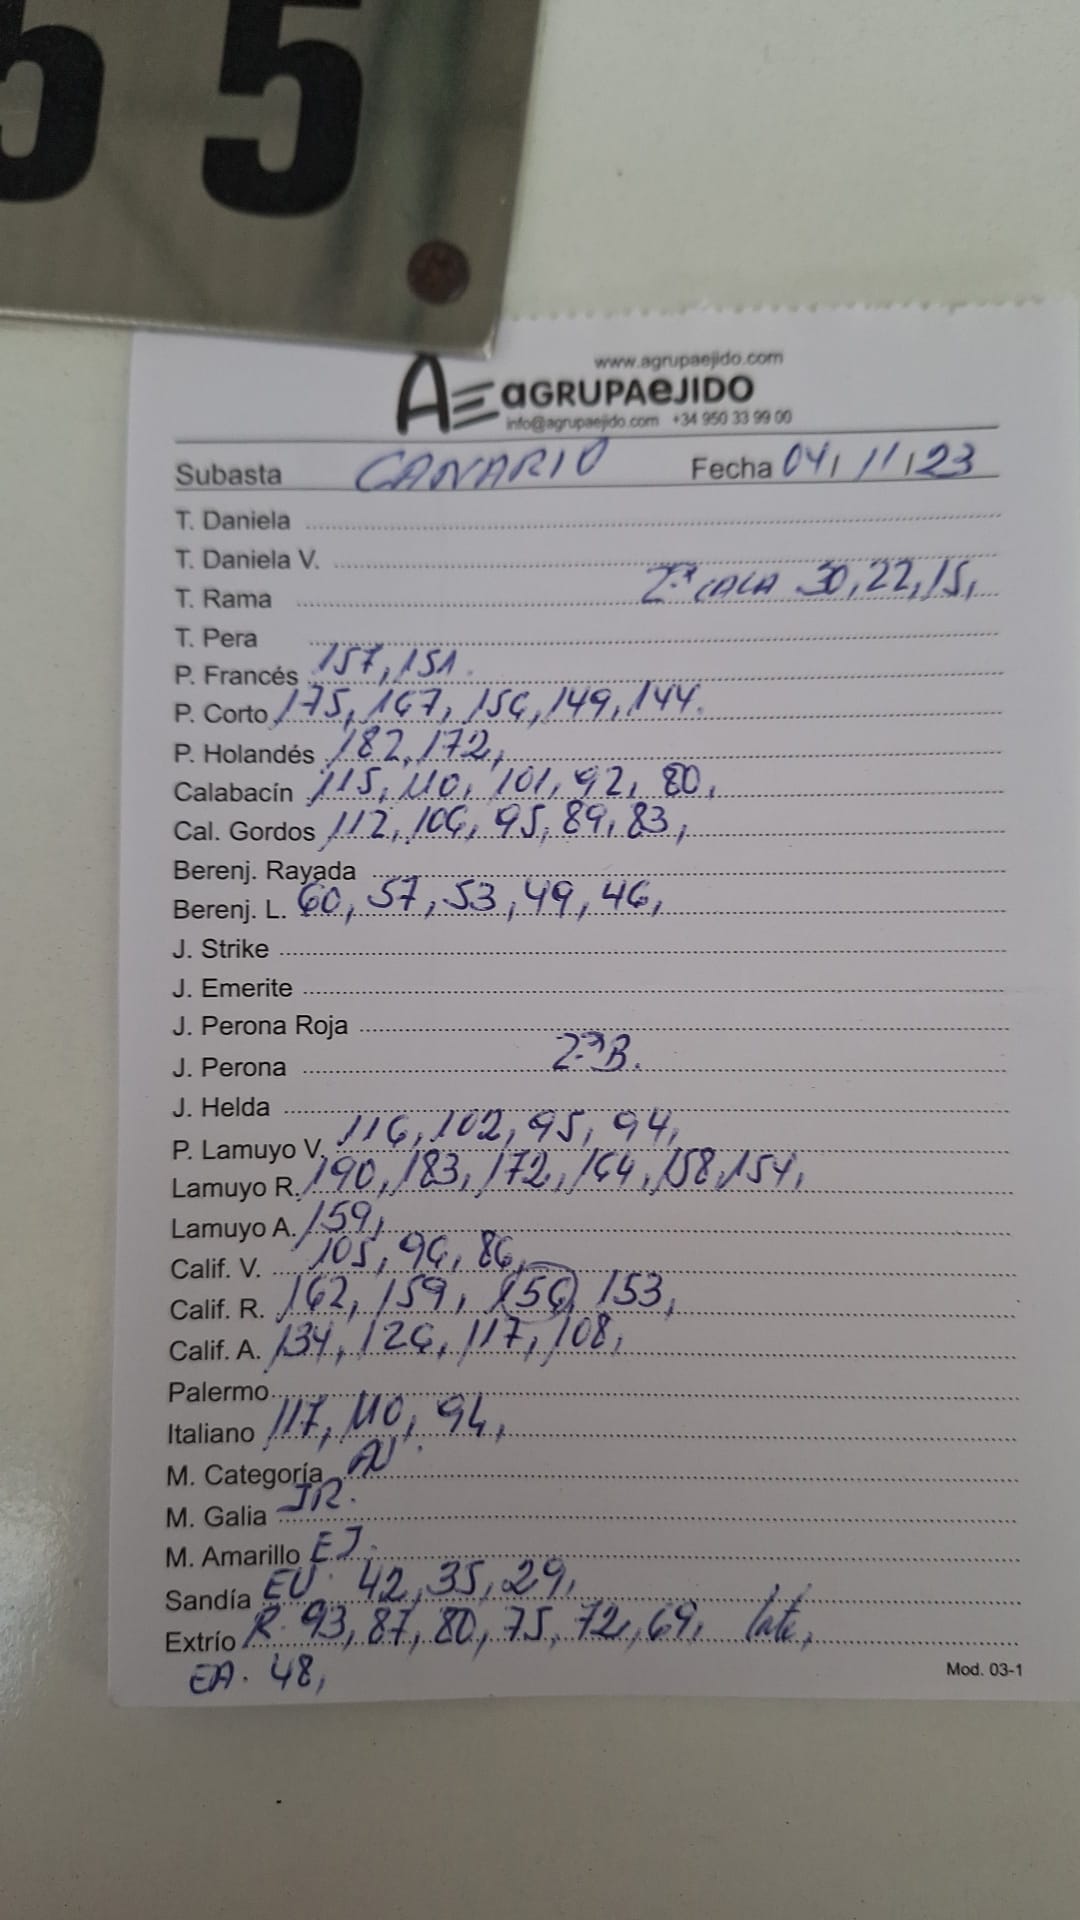 55
www.agrupaejido.com
AE aGRUPAeJIDO
info@agrupaejido.com +34 950 33 99 00
Subasta CANARIO Fecha 04/11/23
T. Daniela
T. Daniela V.
T. Rama 2ª CALA 30, 22, 15,
T. Pera
P. Francés 157, 151.
P. Corto 175, 167, 156, 149, 144.
P. Holandés 182, 172,
Calabacín 115, 110, 101, 92, 80,
Cal. Gordos 112, 106, 95, 89, 83,
Berenj. Rayada
Berenj. L. 60, 57, 53, 49, 46,
J. Strike
J. Emerite
J. Perona Roja
J. Perona 2ª B.
J. Helda
P. Lamuyo V. 116, 102, 95, 94,
Lamuyo R. 190, 183, 172, 164, 158, 154,
Lamuyo A. 159,
Calif. V. 105, 96, 86,
Calif. R. 162, 159, 156, 153,
Calif. A. 134, 126, 117, 108,
Palermo
Italiano 117, 110, 94,
M. Categoría
M. Galia
M. Amarillo EJ.
Sandía EV. 42, 35, 29,
Extrío R. 93, 87, 80, 75, 72, 69,
EA. 48,
Mod. 03-1